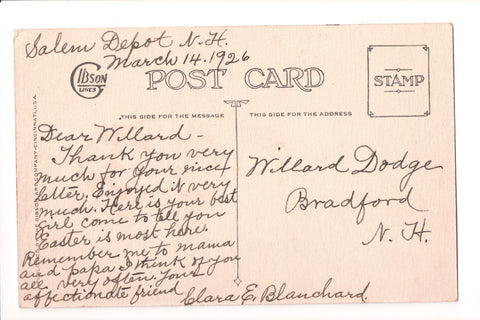 Salem Depot N.H.
March 14. 1926
GIBSON
LINES
POST CARD
STAMP
THIS SIDE FOR THE MESSAGE
THIS SIDE FOR THE ADDRESS
Dear Willard –
Thank you very
much for your nice
letter. Enjoyed it very
much. Here is your best
girl come to tell you
Easter is most here.
Remember me to mama
and papa I think of you
all very often. Your
affectionate friend
Clara E. Blanchard.
Willard Dodge
Bradford
N. H.
GIBSON ART COMPANY-CINCINNATI, U.S.A.